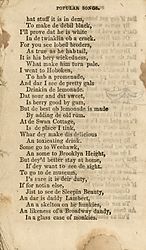 POPULAR SONGS.
hat stuff it is in dem,
To make de debil black,
I'll prove dat he is white
In de twinklin ob a crack.
For you see lobed broders,
As true as he hab tail,
It is his bery wickedness,
What make him turn pale.
I went to Hoboken,
To hab a promenade,
And dar I see de pretty gals
Drinkin de lemonade.
Dat sour and dat sweet,
Is berry good by gum,
But de best ob lemonade is made
By adding de old rum.
At de Swan Cottage,
Is de place I tink,
Whar dey make dis delicious
An toxicating drink.
Some go to Weehawk,
An some to Brooklyn Height,
But dey'd better stay at home,
If dey want to see de sight.
To go to de museum,
I's sure it is deir duty,
If for notin else,
Jist to see de Sleepin Beauty,
An dar is daddy Lambert,
An a skeleton on he bunkies,
An likeness of a Broadway dandy,
In a glass case of monkies.